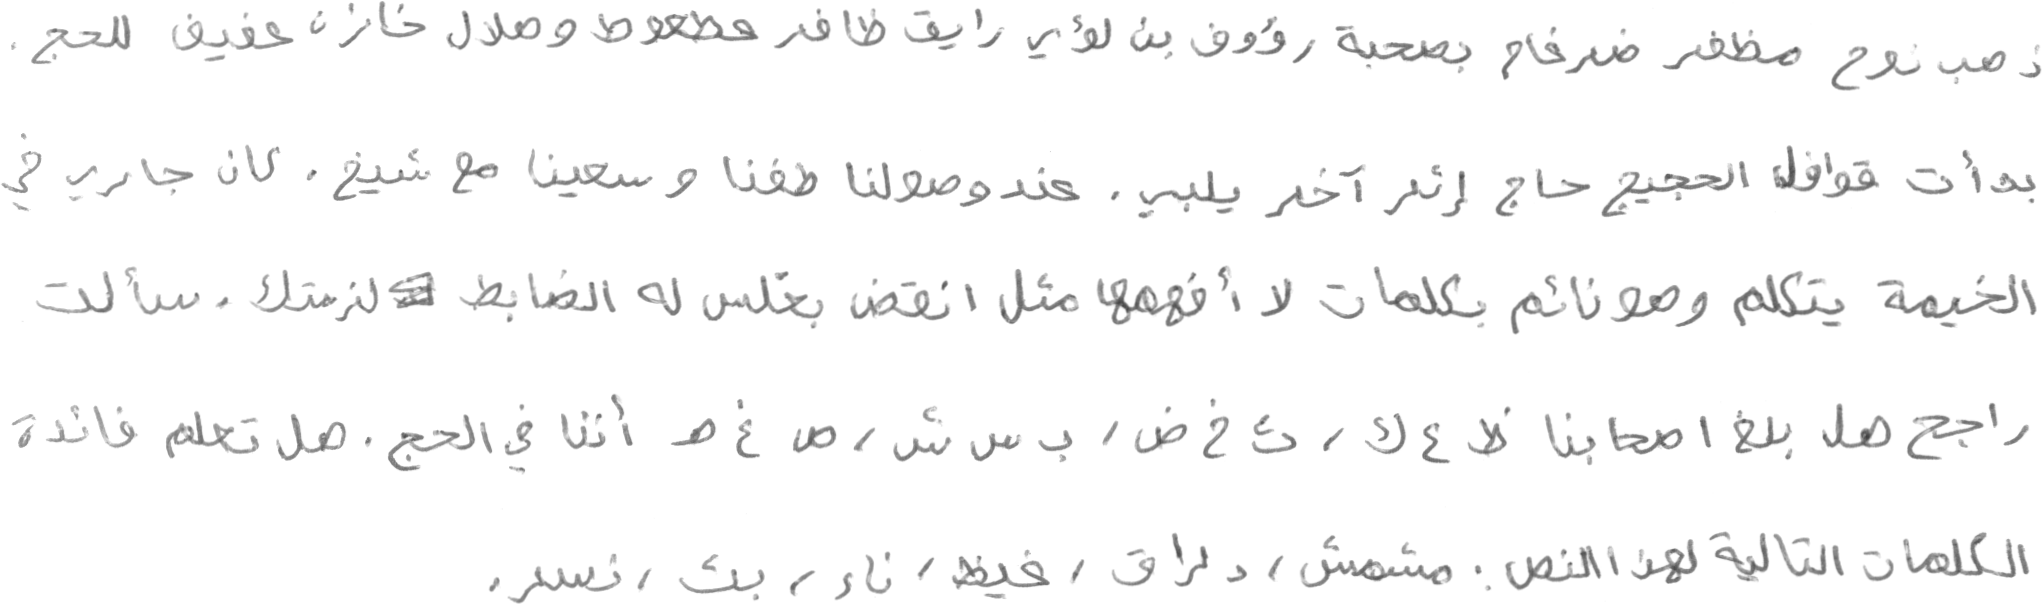 ذهب نوح مظفر ضرغام بصحبة رؤوف بن لؤي رايق ظافر عطعوط وهلال خازن عفيف للحج.
بدأت قوافل الحجيج حاج إثر آخر يلبي. عند وصولنا طفنا وسعينا مع شيخ. كان جاري في
الخيمة يتكلم وهو نائم بكلمات لا أفهمها مثل انقض بغلس له الضابط لزمتك. سألت
راجح هل بلغ اصحابنا ظ ع ك، ث خ ض، ب س ش، ص غ ه أننا في الحج. هل تعلم فائدة
الكلمات التالية لهذا النص: مشمش، دراق، غيظ، ناء، بث، نسر.